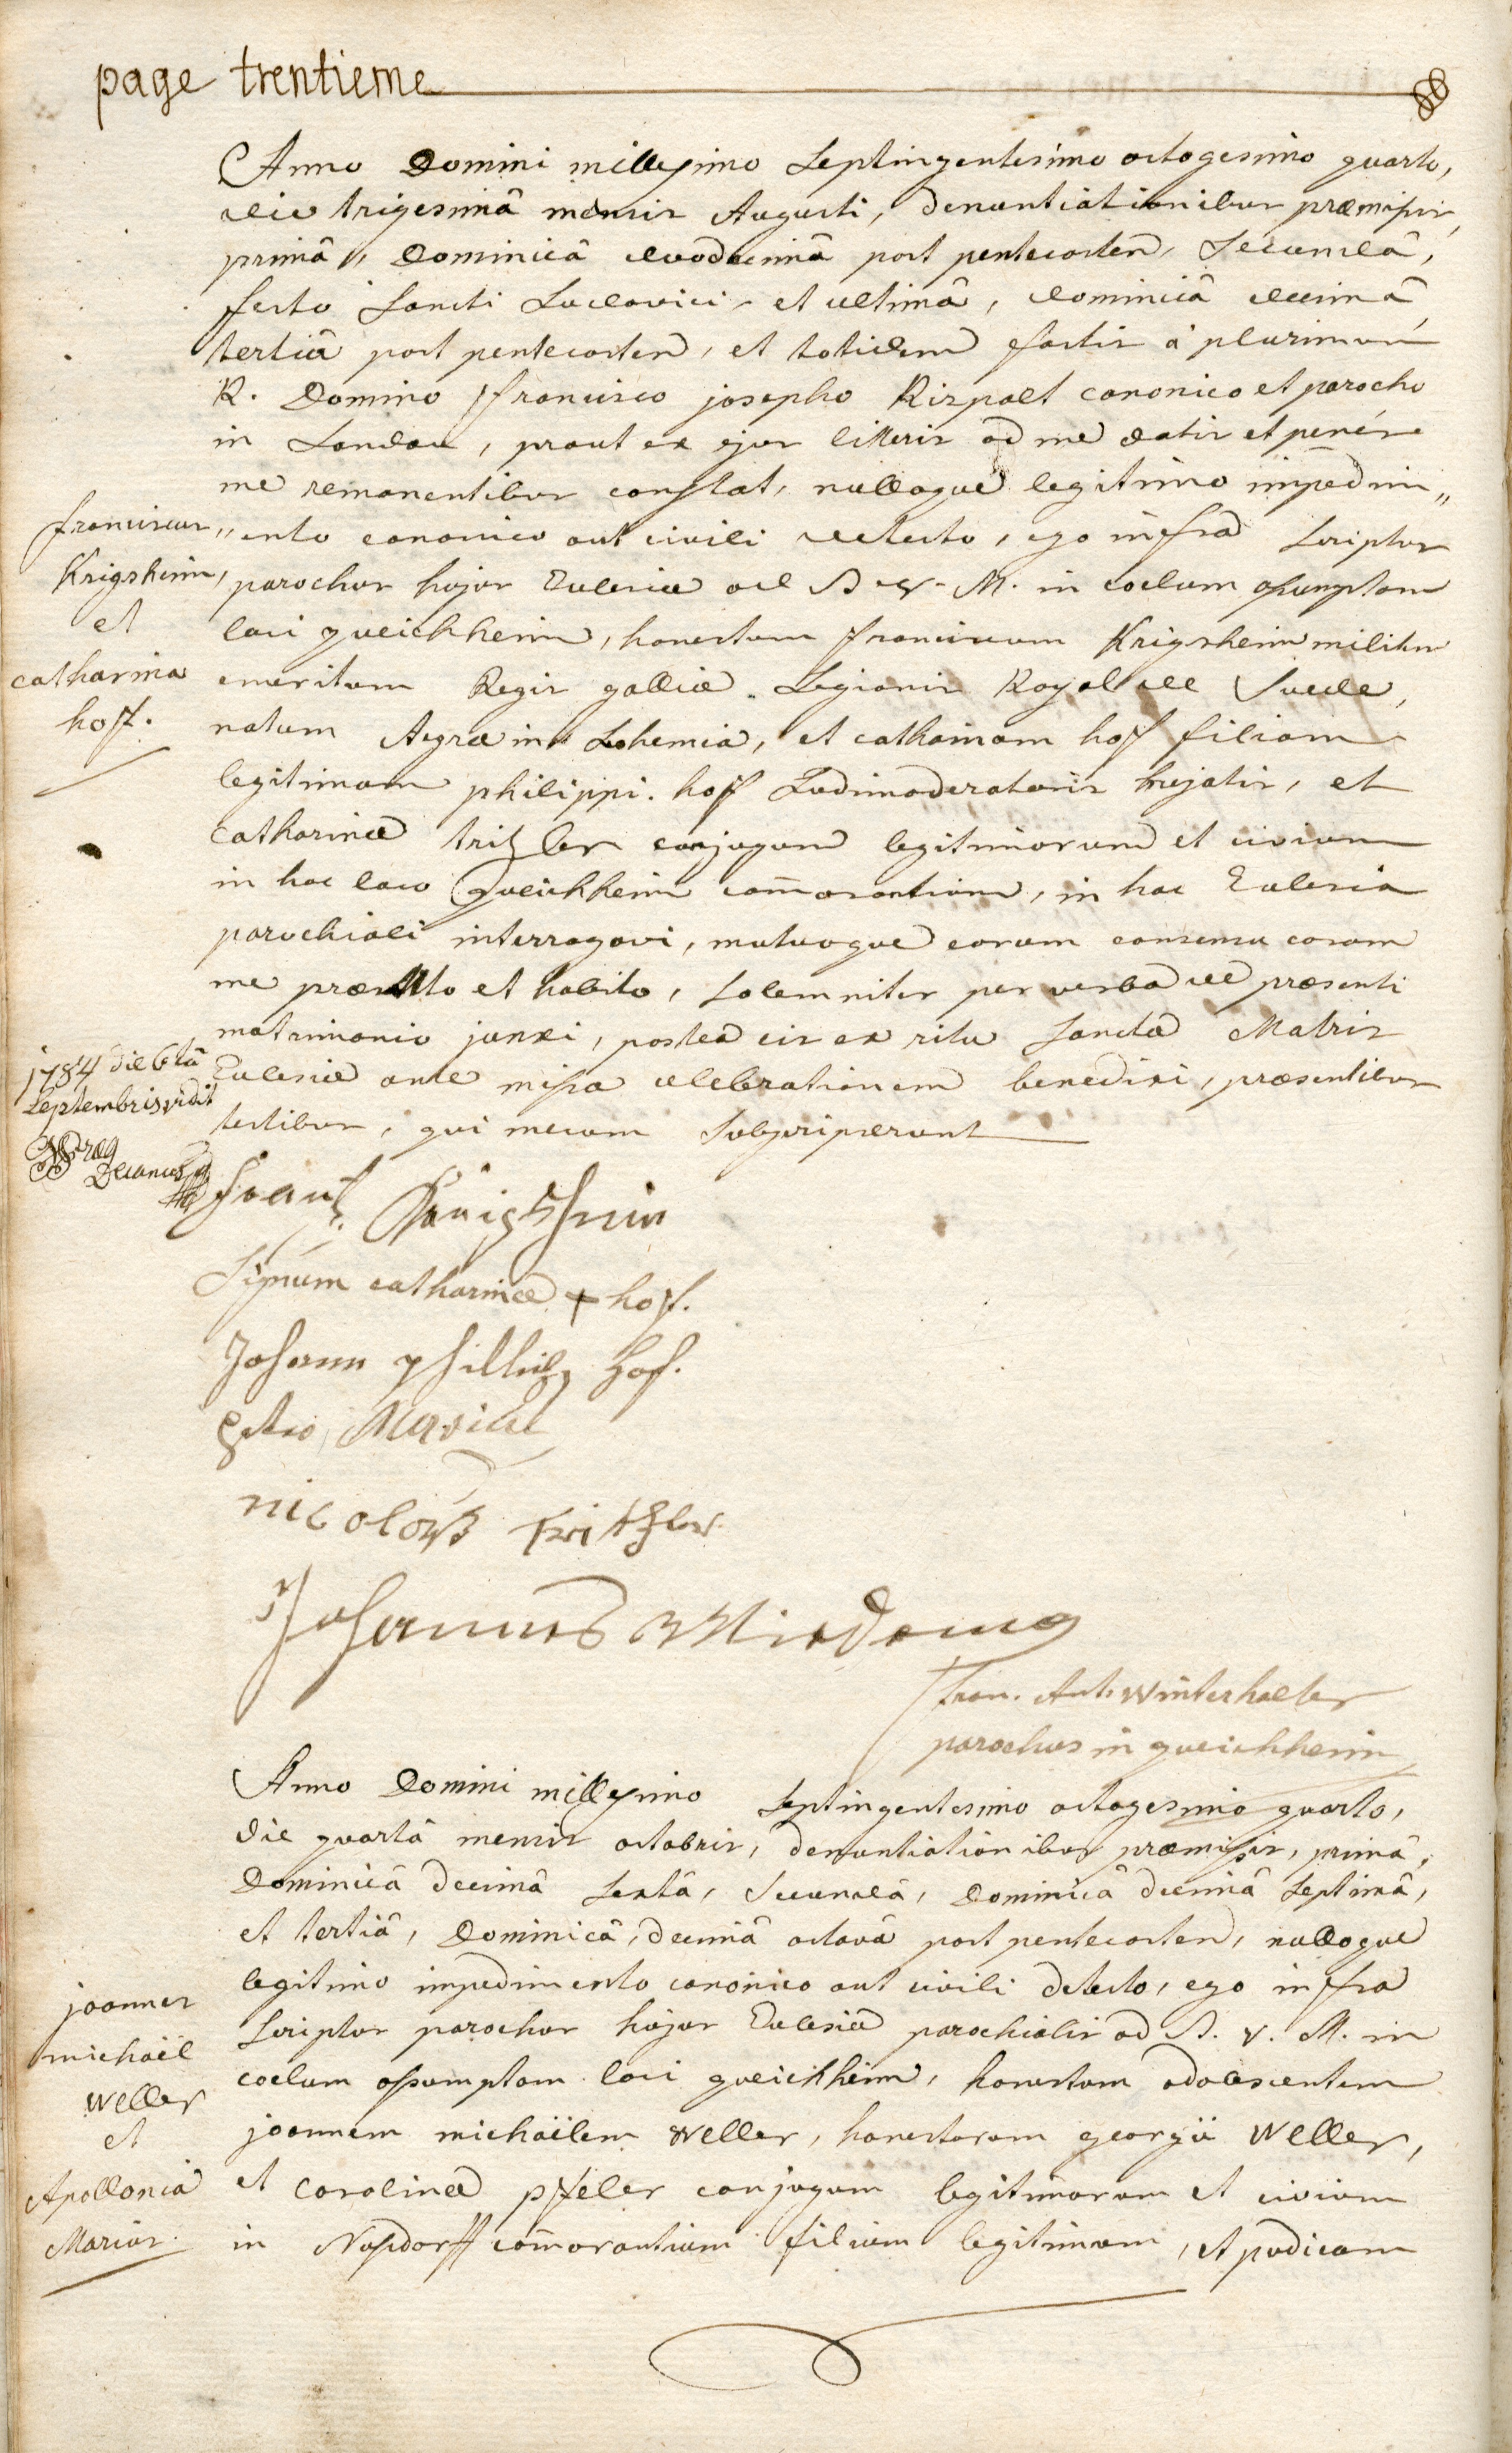 page trentieme
Anno Domini millesimo Septingentesimo octogesimo quarto,
die trigesimâ mensis Augusti, denuntiationibus præmissis,
primâ, Dominicâ duodecimâ post pentecosten, Secundâ,
festo Sancti Ludovici, et ultimâ, dominicâ decimâ
tertiâ post pentecosten, et totidem factis à plurimum
R. Domino francisco josepho Rispalt canonico et parocho
in Landau, prout ex ejus litteris ad me datis et penès
me remanentibus constat, nulloque legitimo impedim„
„ento canonico aut civili detecto, ego infra Scriptus
parochus hujus Ecclesiæ ad B. V. M. in coelum assumptam
loci queichheim, honestum franciscum Krigsheim militem
emeritum Regis galliæ Legionis Royal de Suede,
natum Agræ in Bohemia, et catharinam hoff filiam
legitimam philippi hoff Ludimoderatoris hujatis, et
Catharinæ tritzler conjugum legitimorum et civium
in hoc loco queichheim com̄orantium, in hac Ecclesia
parochiali interrogavi, mutuoque eorum consensu coram
me præstito et habito, Solemniter per verba de præsenti
matrimonio junxi, postea eis ex ritu Sanctæ Matris
Ecclesiæ ante missæ celebrationem benedixi, præsentibus
testibus, qui mecum Subscripserunt
franciscus
Krigsheim,
et
catharina
hoff.
1784 die 6tâ
Septembris vidit
Decanus
frantz Krigsheim
Signum catharinæ + hoff.
Johann phillip hof.
Marius
nicolaus tritzler
Johannes
fran. Ant. Winterhalter
parochus in queichheim
Anno Domini millesimo Septingentesimo octogesimo quarto,
die quartâ mensis octobris, denuntiationibus præmissis, primâ,
Dominicâ decimâ Sextâ, Secundâ, Dominicâ decimâ Septimâ,
et tertiâ, Dominicâ, decimâ octavâ post pentecosten, nulloque
legitimo impedimento canonico aut civili detecto, ego infra
Scriptus parochus hujus Ecclesiæ parochialis ad B. V. M. in
coelum assumptam loci queichheim, honestum adolescentem
joannem michaëlem Weller, honestorum georgii Weller,
et Carolinæ pfeler conjugum legitimorum et civium
in Nusdorff com̄orantium filium legitimum, et pudicam
joannes
michaël
Weller
et
Apollonia
Marius.